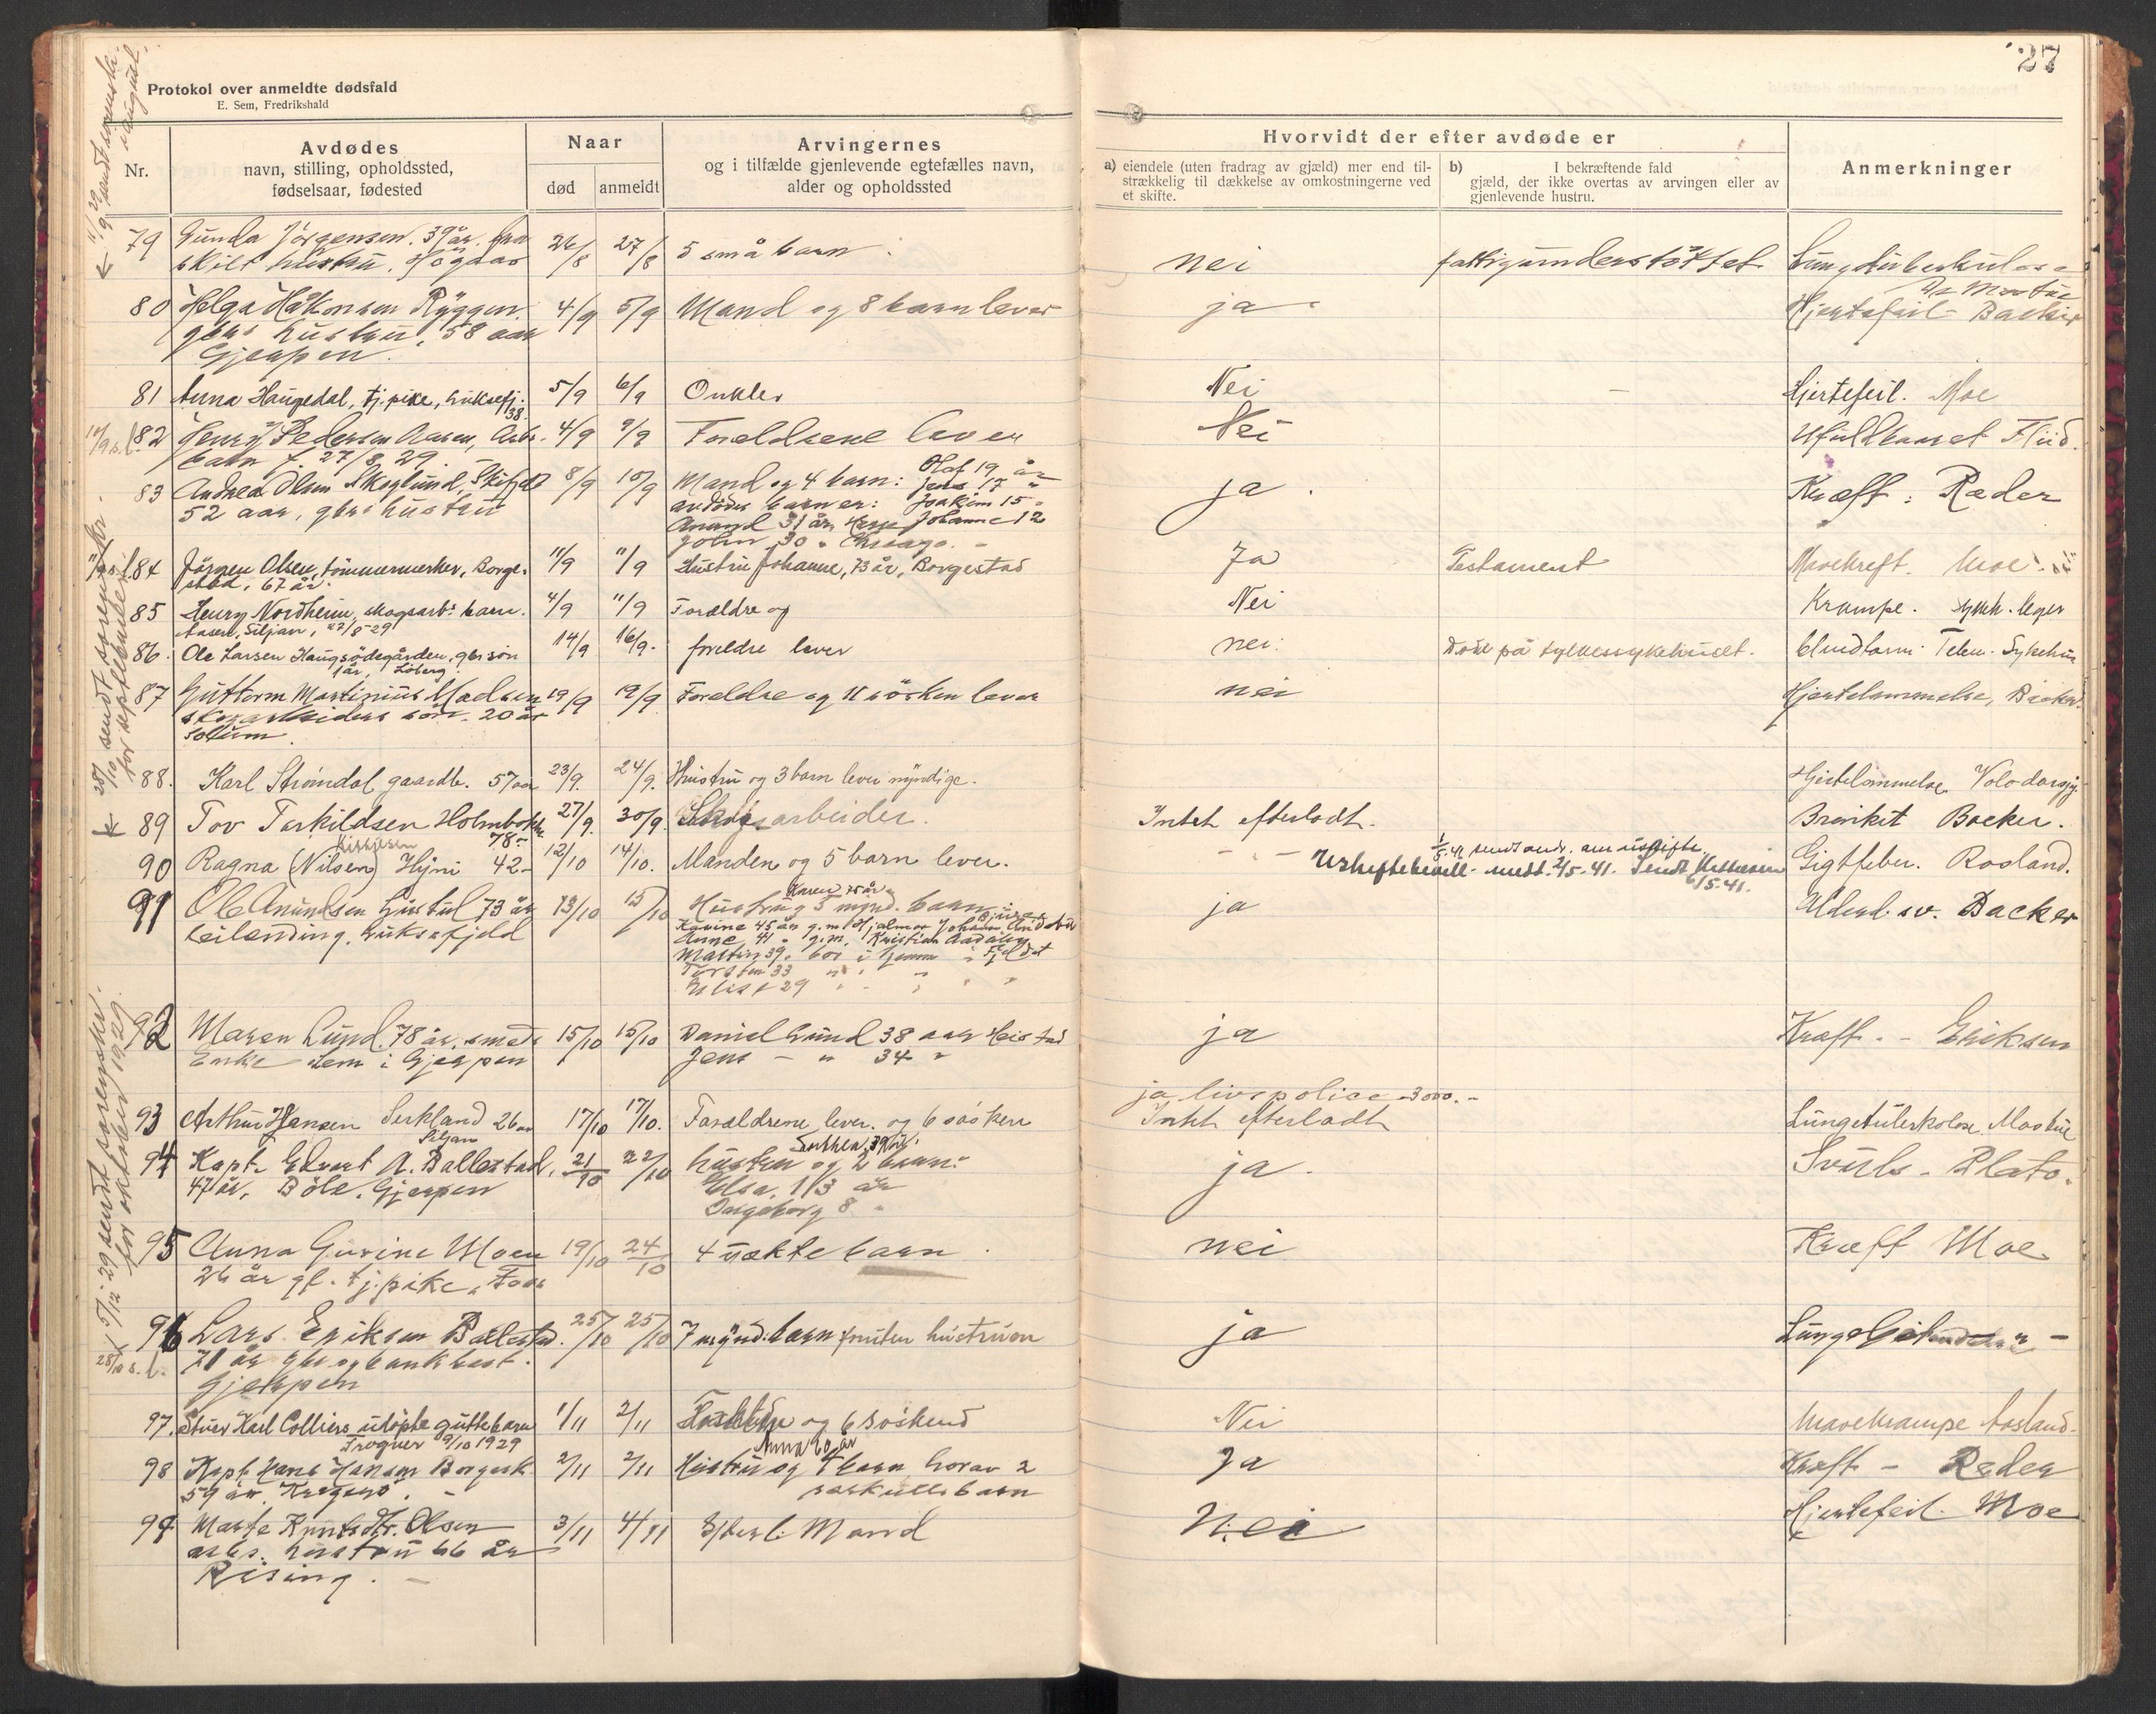 27
Protokol over anmeldte dødsfald
E. Sem, Fredrikshald
11/9 29 sendt
i august.
Nr.
Avdødes
navn, stilling, opholdssted,
fødselsaar, fødested
Naar
død
anmeldt
Arvingernes
og i tilfælde gjenlevende egtefælles navn,
alder og opholdssted
Hvorvidt der efter avdøde er
a) eiendele (uten fradrag av gjæld) mer end til-
strækkelig til dækkelse av omkostningerne ved
et skifte.
b) I bekræftende fald
gjæld, der ikke overtas av arvingen eller av
gjenlevende hustru.
Anmerkninger
79 Gunda Jörgensen. 39 år. fra 26/8 27/8 5 små barn nei fattigunderstöttet Lungetuberkulose
skilt hustru.
80 Helga Håkonsen Ryggen. 4/9 5/9 Mand og 8 barn lever ja Hjertefeil - Backer
gbrs hustru, 58 aar
Gjerpen.
81 Anna Haugedal, tj. pike, Luksefj. 5/9 6/9 Onkler Nei - Hjertefeil. Moe
38
82 Henry Pedersen Aasen, Arb. 4/9 9/9 Foreldrene lever Nei Ufuldbaaret
barn f. 27/8 29
83 Andrea Olsen Skoglund, 8/9 10/9 Mand og 4 barn: Olaf 19 år ja. Kræft: Ræder
Jens 17 "
52 aar, gbrs hustru avdödes barn er: Joakim 15 "
Anund 31 år, Johanne 12
John 30 " Chicago.
84 Jörgen Olsen, tömmermerker, Borge- 11/9 11/9 Hustru Johanne, 73 år, Borgestad Ja Testament Mavekreft. Moe.
stad, 67 år.
85 Henry Nordheim, skogsarb. barn. 4/9 11/9 Forældre og Nei Krampe. sykh. leger
Aasen, Siljan, 27/8-29
86. Ole Larsen Haugsödegården, gbr. sön 14/9 16/9. foreldre lever nei. Döde på fylkessykehuset. Blindtarm. Telem. Sykehus
1 år, Löberg
87 Guttorm Martinius Madsen 19/9 19/9 Foreldre og 11 sösken lever nei Hjertelammelse, Backer
skogarbeiders sön. 20 år
Solum
28/10 sendt sorenskr.
for september.
88. Karl Strömdal gaardb. 57 aar 23/9. 24/9. Hustru og 3 barn lever myndige. Hjertelammelse
89 Tov Torkildsen Holmbakken 27/9. 30/9. Skogsarbeider. Intet efterladt. Bronkit Backer.
78-
90 Ragna (Nilsen) Hyni 42- 12/10 14/10. Manden og 5 barn lever. - " - Gigtfeber. Rosland.
Uskiftebevill. medt. 2/5-41. Sendt
6/5.41.
91 Ole Anundsen Gustul 73 år 13/10 15/10 Hustru og 5 mynd. barn: ja Alderd. sv. Backer
Karen 75 år
leilending. Luksefjeld
Karine 45 år g.m. Hjalmar Johans.
Anne 41 " g.m. Kristian
Martin 39 " bor i hjemm
Torsten 33 " "
29 " "
92 Maren Lund. 78 år. smeds 15/10 15/10 Daniel Lund 38 aar Heistad ja Kræft. - Eriksen
Enke - Lem i Gjerpen Jens - " 34 "
5/12 29 sendt sorenskr.
for oktober 1929.
ja livspolice 3000.-
93 Arthur Hansen Serkland 26 aar 17/10 17/10. Forældrene lever. og 6 söskere Intet efterladt Lungetuberkolose. Mostue
Siljan
94 Kapt. Edvart A. Ballestad, 21/10 22/10 hustru og 2 barn: ja. Svulst - Plato.
47 år, Böle, Gjerpen Elsa, 13 år
Ingeborg 8 "
95 Anna Gurine Moen 19/10 24/10 4 uekte barn. nei Kræft Moe
26 år gl. tj. pike, Foss
96 Lars Eriksen Ballestad. 25/10 25/10 7 mynd. barn foruten hustruen ja
71 år gbr og bankbest.
Gjerpen
28/10 s. l.
97. Stuer Karl Colliers udöpte guttebarn 1/11 2/11 Foreldre og 6 söskend Nei Mavekrampe Rosland.
Frogner 9/10 1929
Anna 60 år
98 Kapt. Hans Hansen Borgest. 2/11 2/11 Hustru og 4 barn horav 2 Ja Kræft - Ræder
59 år. Kragerö. særkulls barn
99 Marte Knutsdtr. Olsen 3/11 4/11 Efterl. Mand Nei Hjertefeil. Moe
arbs. hustru 66 år
Rising.